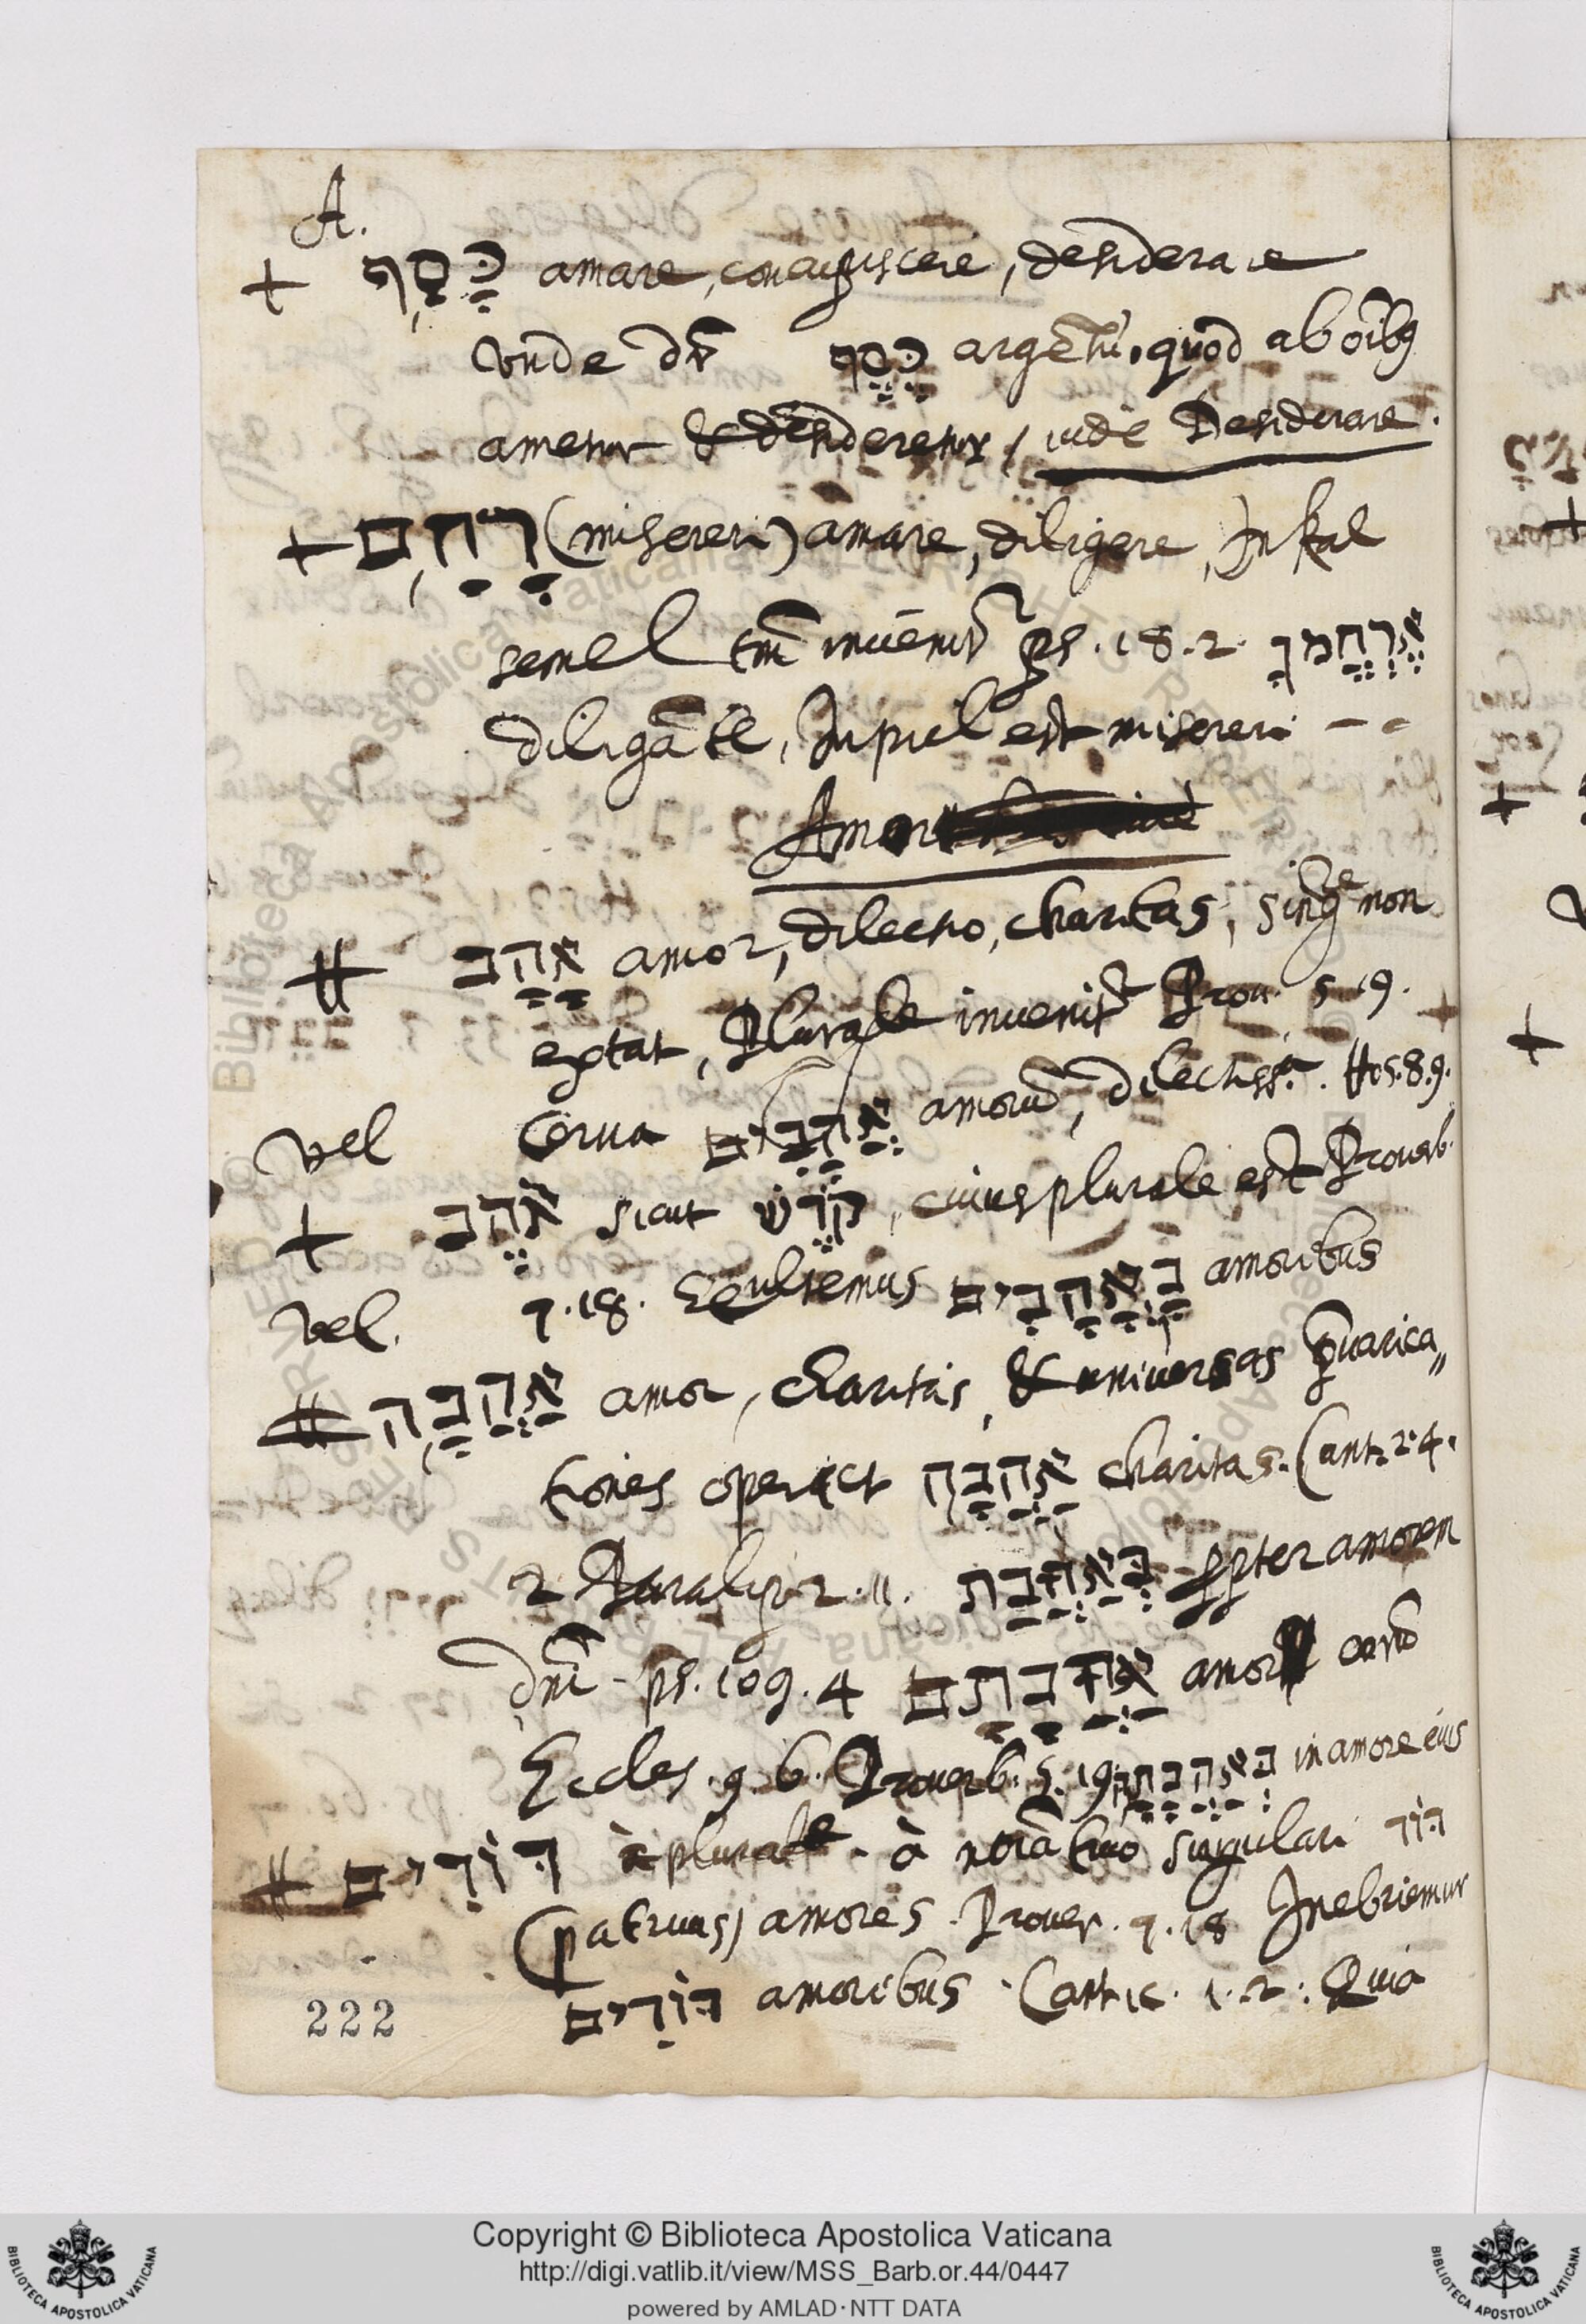 A.
+ כָּסַף amare, concupiscere, desiderare
vnde dr̃ כֶּסֶף argẽtũ, quod ab oĩbꝯ
ametur & desideretur, uide Desiderare.
+ רָחַם (misereri) amare, diligere, In kal
semel tm̃ inuẽnitr̃ ps. 18. 2. אֶרְחֳמְךָ
diligã te, In piel est misereri
Amor
# אַהַב amor, dilectio, charitas, singre non
extat, Plurale inuenitr̃ Prou. 5. 19.
vel Cerua אֲהָבִים amorũ, dilectissa. Hos. 8. 9.
+ אֹהֶב sicut קֹדֶשׁ, cuius plurale est Prouerb.
vel. 7. 18. Exultemus בָּאֳהָבִים amoribus
# אַהֲבָה amor, charitas, & universas p̃uarica„
tiones operiet אַהֲבָה charitas. Cant. 2. 4.
2 Paralip. 2. 11. בְּאַהֲבַת ꝓpter amorem
dnĩ - ps. 109. 4 אַהֲבָתָם amor eorũ
Eccles. 9. 6. Prouerb. 5. 19. בְּאַהֲבָתָהּ in amore eius
# דּוֹדִים plurale. à singulari דּוֹד
(patruus) amores. Prouer. 7. 18 Inebriemur
דּוֹדִים amoribus. Cantic. 1. 2: Quia
222
Copyright © Biblioteca Apostolica Vaticana
http://digi.vatlib.it/view/MSS_Barb.or.44/0447
powered by AMLAD·NTT DATA
BIBLIOTECA APOSTOLICA VATICANA
BIBLIOTECA APOSTOLICA VATICANA